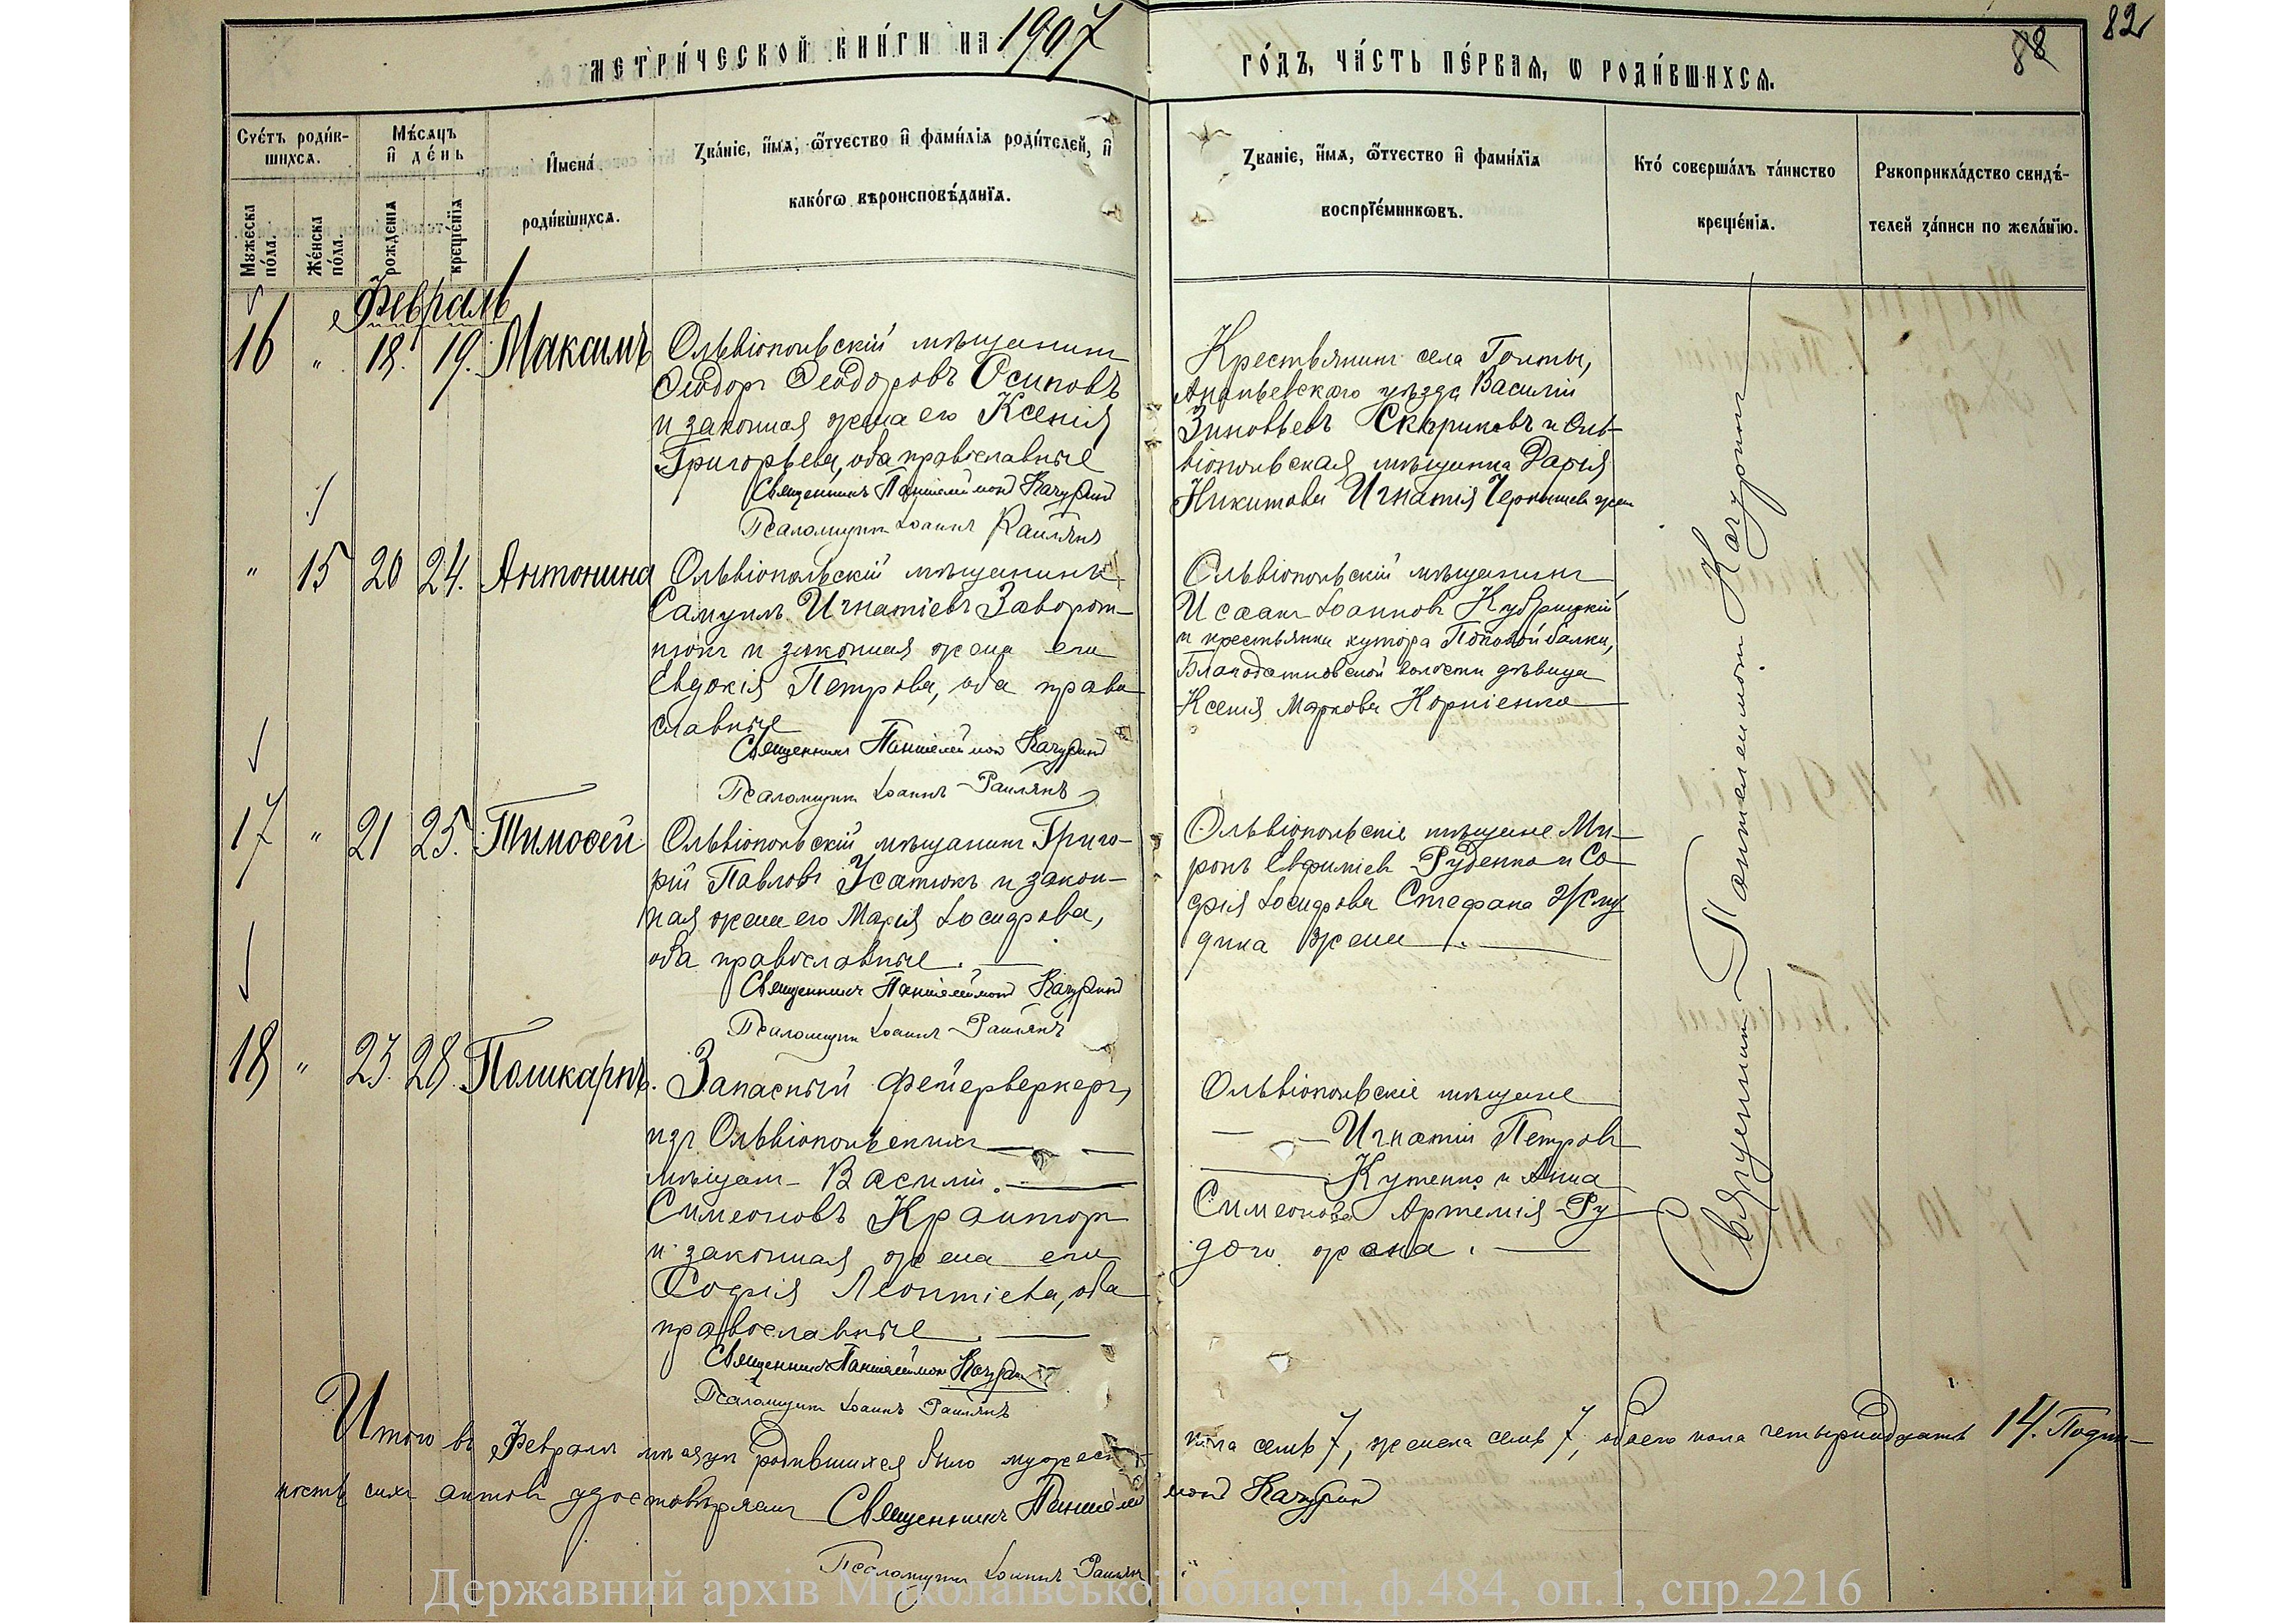 МЕТРИ́ЧЕСКОЙ КНИ́ГИ НА 1907
ГО́ДЪ, ЧА́СТЬ ПЕ́РВАѦ, Ѡ РОДИ́ВШИХСѦ.
88
82
Сче́тъ роди́в-
шихсѧ.
Мѣ́сѧцъ
и҆ де́нь
Мꙋ́жеска по́ла.
Же́нска по́ла.
рожде́нїѧ
креще́нїѧ
И҆мена́
роди́вшихсѧ.
Зва́нїе, и҆́мѧ, ѻ҆́тчество и҆ фами́лїѧ роди́телей, и҆
како́гѡ вѣроисповѣ́данїѧ.
Зва́нїе, и҆́мѧ, ѻ҆́тчество и҆ фами́лїѧ
воспрїе́мникѡвъ.
Кто́ соверша́лъ та́инство
креще́нїѧ.
Рꙋкоприкла́дство свидѣ́-
телей за́писи по жела́нїю.
Февраль
16 " 18. 19. Максимъ
Ольвіопольскій мѣщанинъ
Ѳеодоръ Ѳеодоровъ Осиповъ
и законная жена его Ксенія
Григорьева, оба православные
Священникъ Пантелеимонъ Качуринъ
Псаломщикъ Іоаннъ Раилянъ
Крестьянинъ села Голты,
Ананьевскаго уѣзда Василій
Зиновьевъ Скрыповъ и Оль-
віопольская мѣщанка Дарія
Никитова Игнатія Чернышева жена
" 15 20 24. Антонина
Ольвіопольскій мѣщанинъ
Самуилъ Игнатіевъ Заворот-
нюкъ и законная жена его
Евдокія Петрова, оба право
славные
Священникъ Пантелеимонъ Качуринъ
Псаломщикъ Іоаннъ Раилянъ
Ольвіопольскій мѣщанинъ
Исаакъ Іоанновъ Кубрицкій
и крестьянка хутора Поповой балки,
Благодатновской волости дѣвица
Ксенія Маркова Корніенко
17 " 21 25. Тимоѳей
Ольвіопольскій мѣщанинъ Григо-
рій Павловъ Усатюкъ и закон-
ная жена его Марія Іосифова,
оба православные.
Священникъ Пантелеимонъ Качуринъ
Псаломщикъ Іоаннъ Раилянъ
Ольвіопольскіе мѣщане Ми-
ронъ Евфиміевъ Руденко и Со-
фія Іосифова Стефана
жена.
18 " 23. 28. Поликарпъ.
Запасный фейерверкеръ,
изъ Ольвіопольскихъ
мѣщанъ Василій
Симеоновъ Крамторъ
и законная жена его
Софія Леонтіева, оба
православные.
Священникъ Пантелеимонъ Качуринъ
Псаломщикъ Іоаннъ Раилянъ
Ольвіопольскіе мѣщане
Игнатій Петровъ
Куценко и Анна
Симеонова Артемія Ру-
дого жена.
Священникъ Пантелеимонъ Качуринъ
Итого въ Февралѣ мѣсяцѣ родившихся было мужеска пола семь 7, женска семь 7, обоего пола четырнадцать 14. Подлин-
ность сихъ актовъ удостовѣряемъ Священникъ Пантелеимонъ Качуринъ
Псаломщикъ Іоаннъ Раилянъ
Державний архів Миколаївської області, ф.484, оп.1, спр.2216